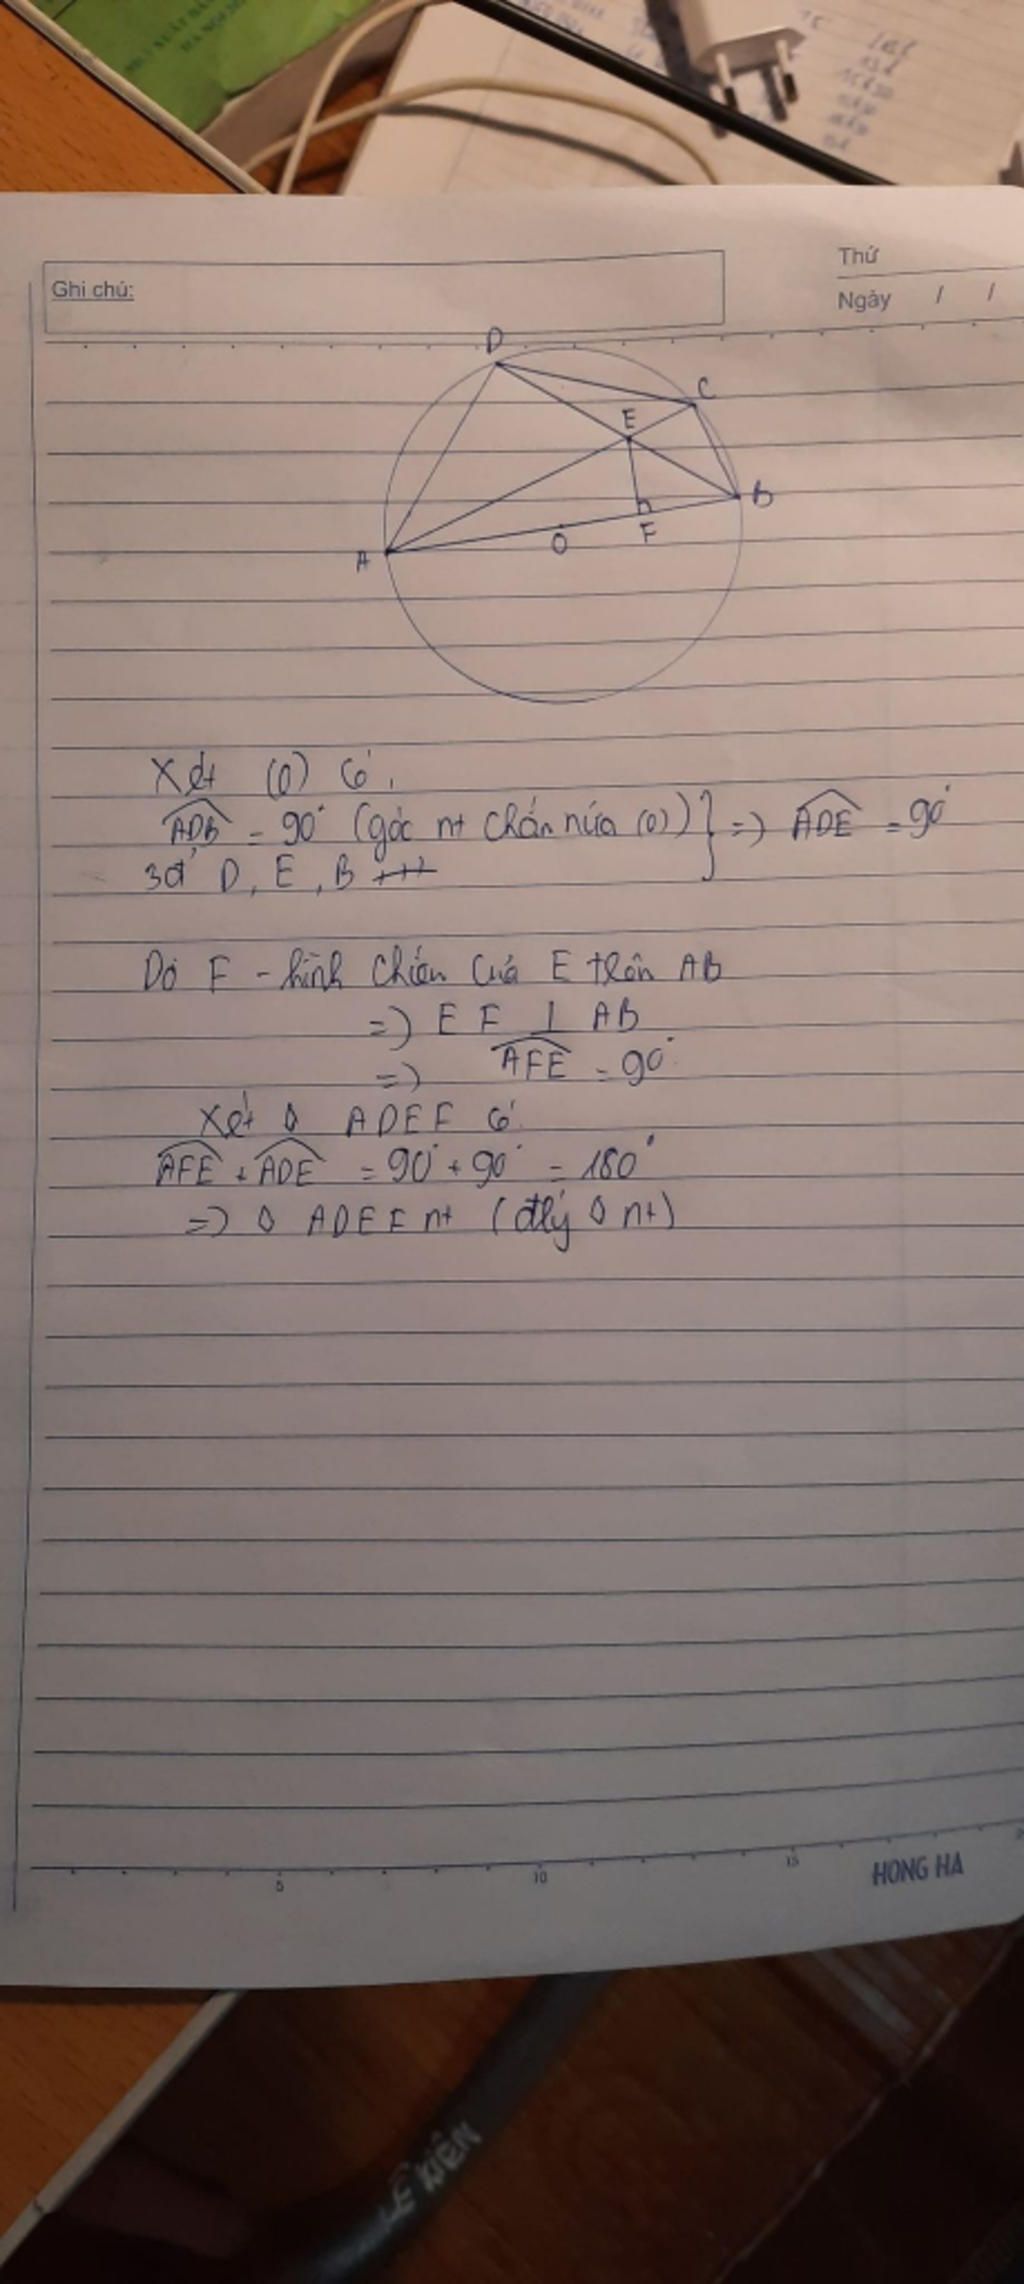 Thứ
Ghi chú:
Ngày / /
D
C
E
B
F
O
A
Xét (O) có
ADB = 90° (góc nt chắn nửa (O)) } => ADE = 90°
3đ' D, E, B ...
Do F - hình chiếu của E trên AB
=> EF ⊥ AB
=> AFE = 90°
Xét ◊ ADEF có
AFE + ADE = 90° + 90° = 180°
=> ◊ ADEF nt (đlý ◊ nt)
5 10 15
HONG HA